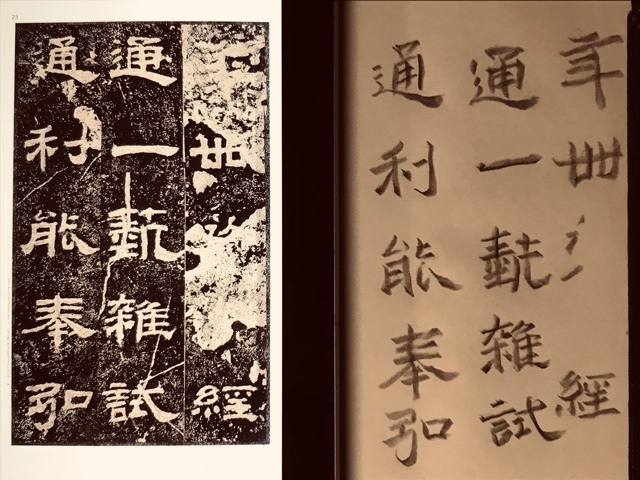 23
年卌經
通一埶雜試
通利能奉弘
年卌經
通一埶雜試
通利能奉弘